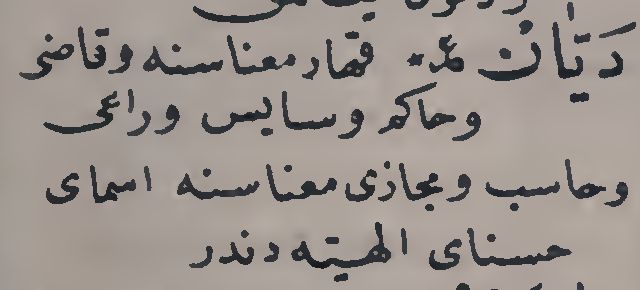 دَيَّانْ عم قهّار معناسنه وقاضى
وحاكم وسايس وراعى
وحاسب ومجازى معناسنه اسماى
حسناى الهيّه دندر